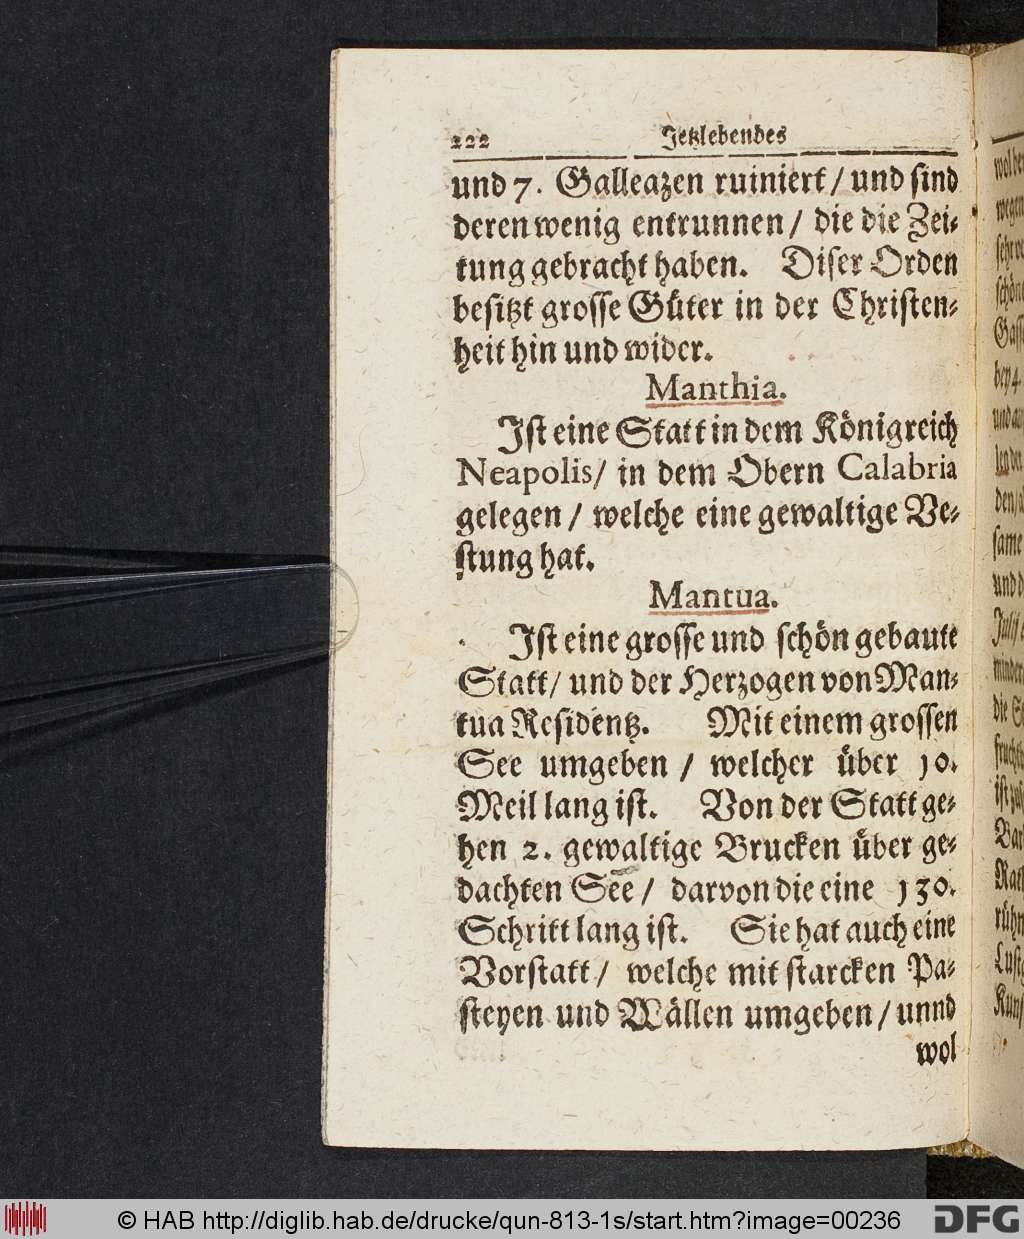 222 Jetzlebendes
und 7. Galleazen ruiniert / und sind
deren wenig entrunnen / die die Zei-
tung gebracht haben. Diser Orden
besitzt grosse Güter in der Christen-
heit hin und wider.
Manthia.
Ist eine Statt in dem Königreich
Neapolis / in dem Obern Calabria
gelegen / welche eine gewaltige Ve-
stung hat.
Mantua.
Ist eine grosse und schön gebaute
Statt / und der Herzogen von Man-
tua Residentz. Mit einem grossen
See umgeben / welcher über 10.
Meil lang ist. Von der Statt ge-
hen 2. gewaltige Brucken über ge-
dachten See / darvon die eine 130.
Schritt lang ist. Sie hat auch eine
Vorstatt / welche mit starcken Pa-
steyen und Wällen umgeben / unnd
wol
© HAB http://diglib.hab.de/drucke/qun-813-1s/start.htm?image=00236
DFG